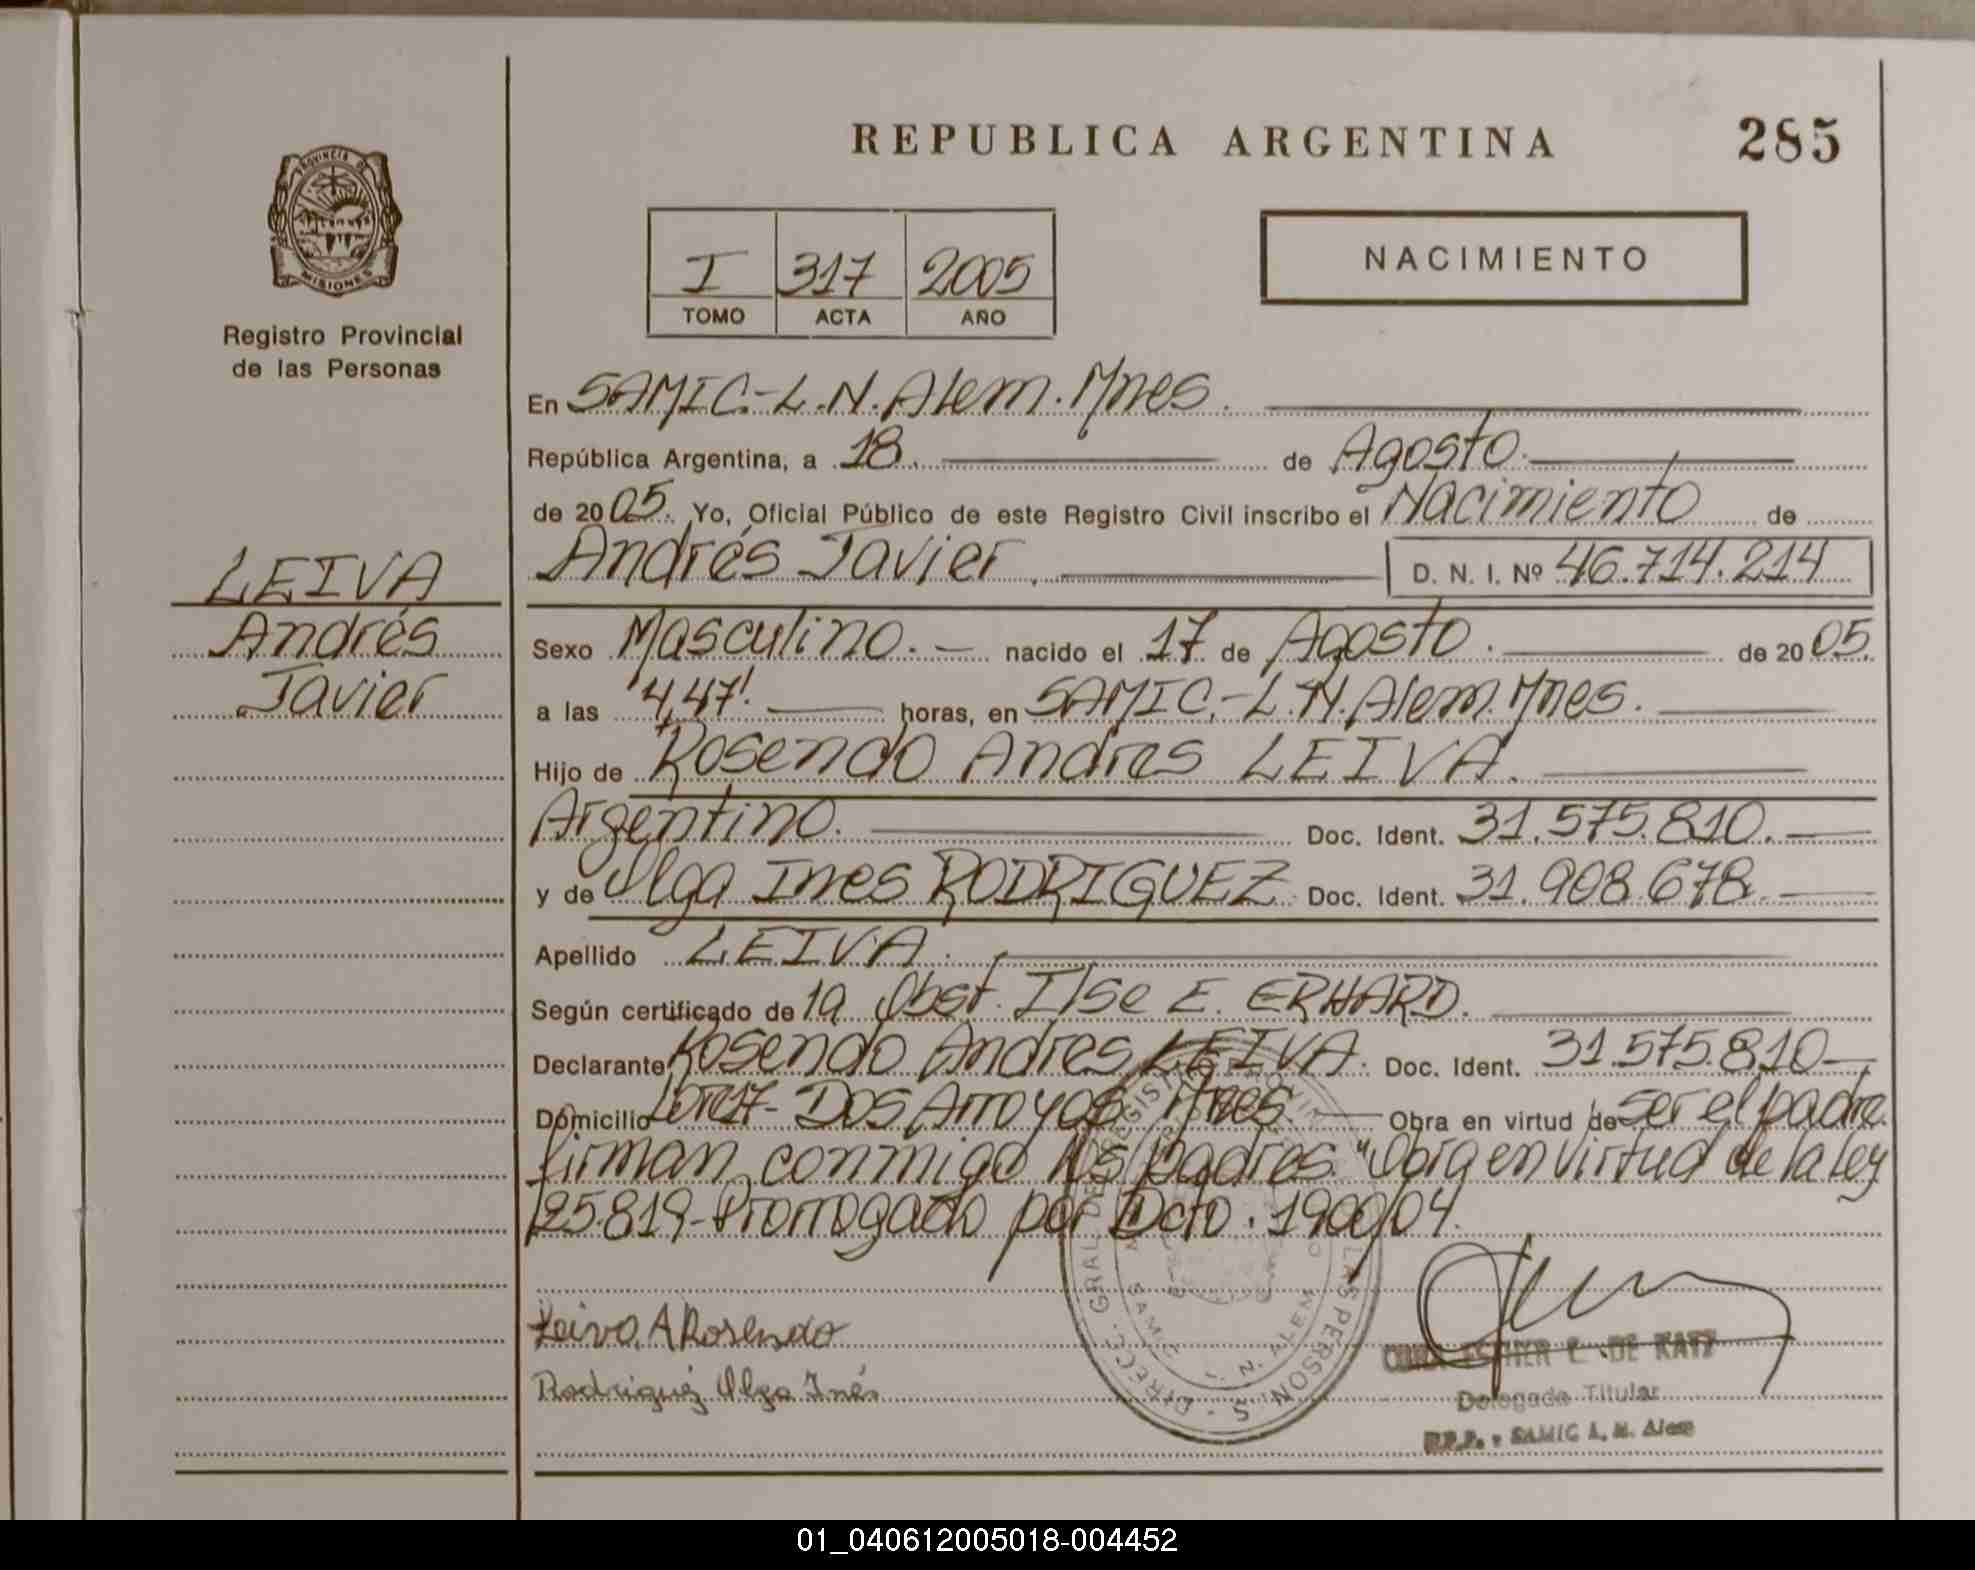 REPUBLICA ARGENTINA
285
PROVINCIA DE
MISIONES
Registro Provincial
de las Personas
I 317 2005
TOMO ACTA AÑO
NACIMIENTO
En SAMIC.-L.N.Alem.Mnes.
República Argentina, a 18. de Agosto.
de 2005. Yo, Oficial Público de este Registro Civil inscribo el Nacimiento de
Andrés Javier. D. N. I. Nº 46.714.214
LEIVA
Andrés
Javier
Sexo Masculino.- nacido el 17 de Agosto. de 2005.
a las 4,47'. horas, en SAMIC.-L.N.Alem.Mnes.
Hijo de Rosendo Andres LEIVA.
Argentino. Doc. Ident. 31.575.810.
y de Olga Ines RODRIGUEZ Doc. Ident. 31.908.678.
Apellido LEIVA.
Según certificado de la Obst. Ilse E. ERHARD.
Declarante Rosendo Andres LEIVA. Doc. Ident. 31.575.810
Domicilio Dos Arroyos Mnes. Obra en virtud de ser el padre
firman conmigo los padres. "Obra en virtud de la ley
25.819-Prorrogado por Dcto. 1900/04.
Leiva, A Rosendo
Rodriguez Olga Inés
ESTHER E. DE KATZ
Delegada Titular
R.P.P. - SAMIC L. N. Alem
01_040612005018-004452